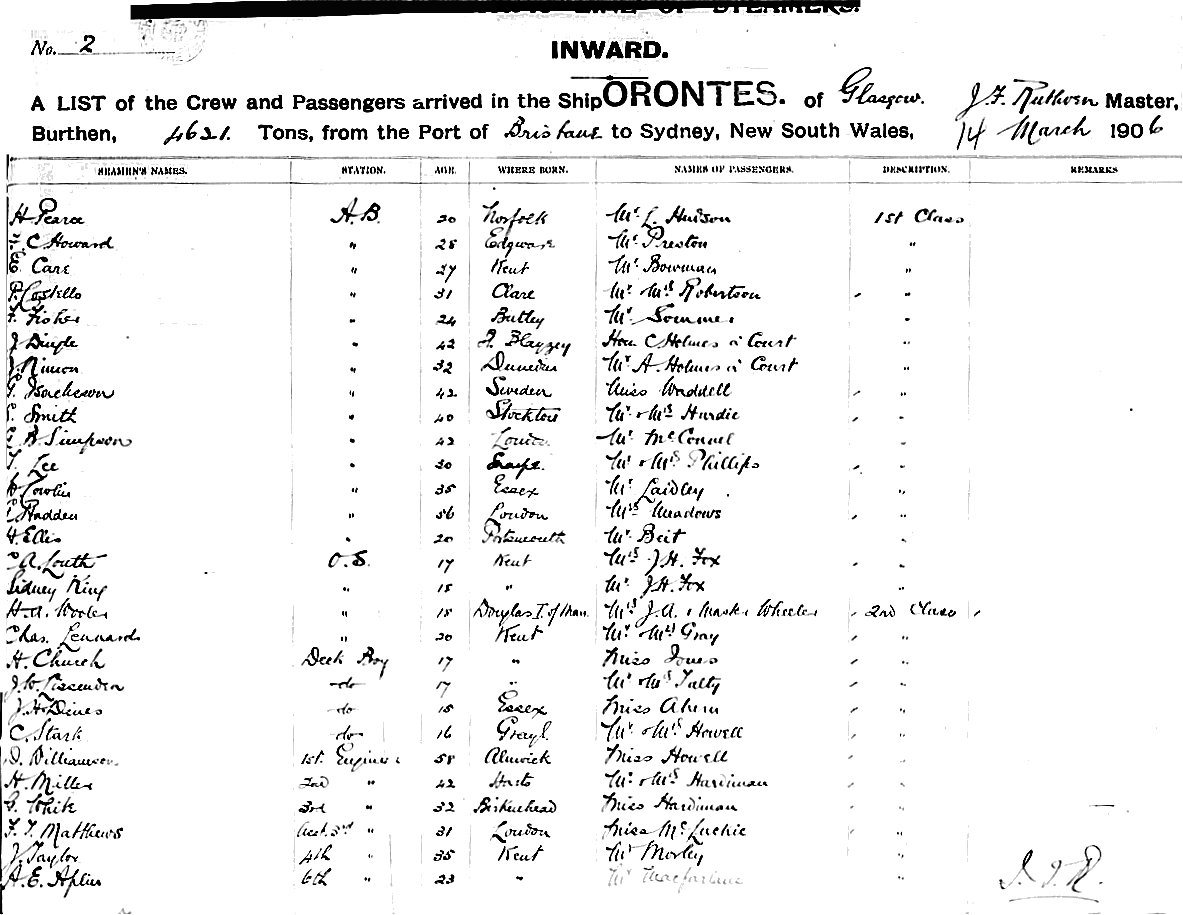 LINE OF STEAMERS.
No. 2
INWARD.
A LIST of the Crew and Passengers arrived in the Ship ORONTES. of Glasgow. J. F. Ruthven Master,
Burthen, 4621. Tons, from the Port of Brisbane to Sydney, New South Wales, 14 March 1906
SEAMEN'S NAMES. STATION. AGE. WHERE BORN. NAMES OF PASSENGERS. DESCRIPTION. REMARKS
H Pearce A.B. 20 Norfolk Mr. L. Hudson 1st Class
C Howard " 28 Edgware Mr. Preston "
Care " 27 Kent Mr. Bowman "
P. Costello " 31 Clare Mr Mrs Robertson "
F. Fisher " 24 Butley Mr. Sommer "
J Dingle " 42 Blazzey Hon C Holmes à Court "
Nimon " 32 Dunedin Mr A. Holmes à Court "
" 42 Sweden Miss Waddell "
Smith " 40 Stockton Mr & Mrs Hardie "
B. Simpson " 42 London Mr. McConnel "
Lee " 30 Mr & Mrs Phillips "
" 35 Essex Mr Laidley "
Hadden " 56 London Mrs Meadows "
H. Ellis " 20 Portsmouth Mr. Beit "
A. Louth O.S. 17 Kent Mrs J.H. Fox "
Sidney King " 18 " Mr. J.H. Fox "
H.A. " 18 Douglas I. of Man. Mrs J.A. & Master Wheeler 2nd Class
Chas. Lennards " 20 Kent Mr. Mrs Gray "
H. Church Deck Boy 17 " Miss Jones "
J.W. Lissenden do 17 " Mr & Mrs Talty "
J.H. do 15 Essex Miss Ahern "
C. Stark do 16 Grays Mr & Mrs Howell "
D. Williamson 1st Engineer 58 Alnwick Miss Howell "
H. Miller 2nd " 42 Hants Mr. & Mrs Hardiman "
G. White 3rd " 32 Birkenhead Miss Hardiman "
F. T. Matthews Asst. 3rd " 31 London Miss McLuckie "
J. Taylor 4th " 35 Kent Mr Morley "
A. E. Aplin 6th " 23 " Mr Macfarlane "